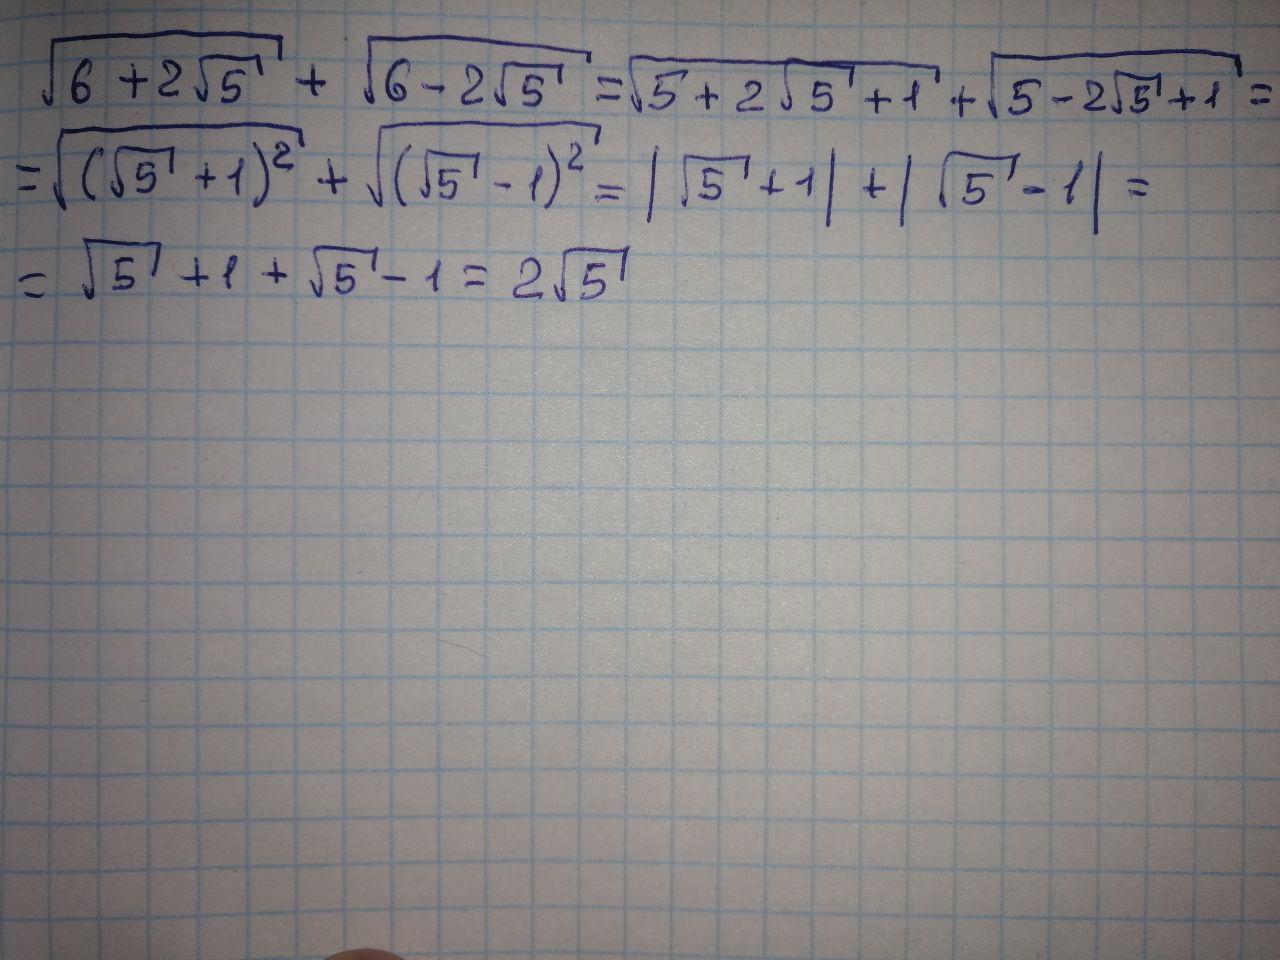 √(6 + 2√5) + √(6 - 2√5) = √(5 + 2√5 + 1) + √(5 - 2√5 + 1) =
= √((√5 + 1)²) + √((√5 - 1)²) = |√5 + 1| + |√5 - 1| =
= √5 + 1 + √5 - 1 = 2√5